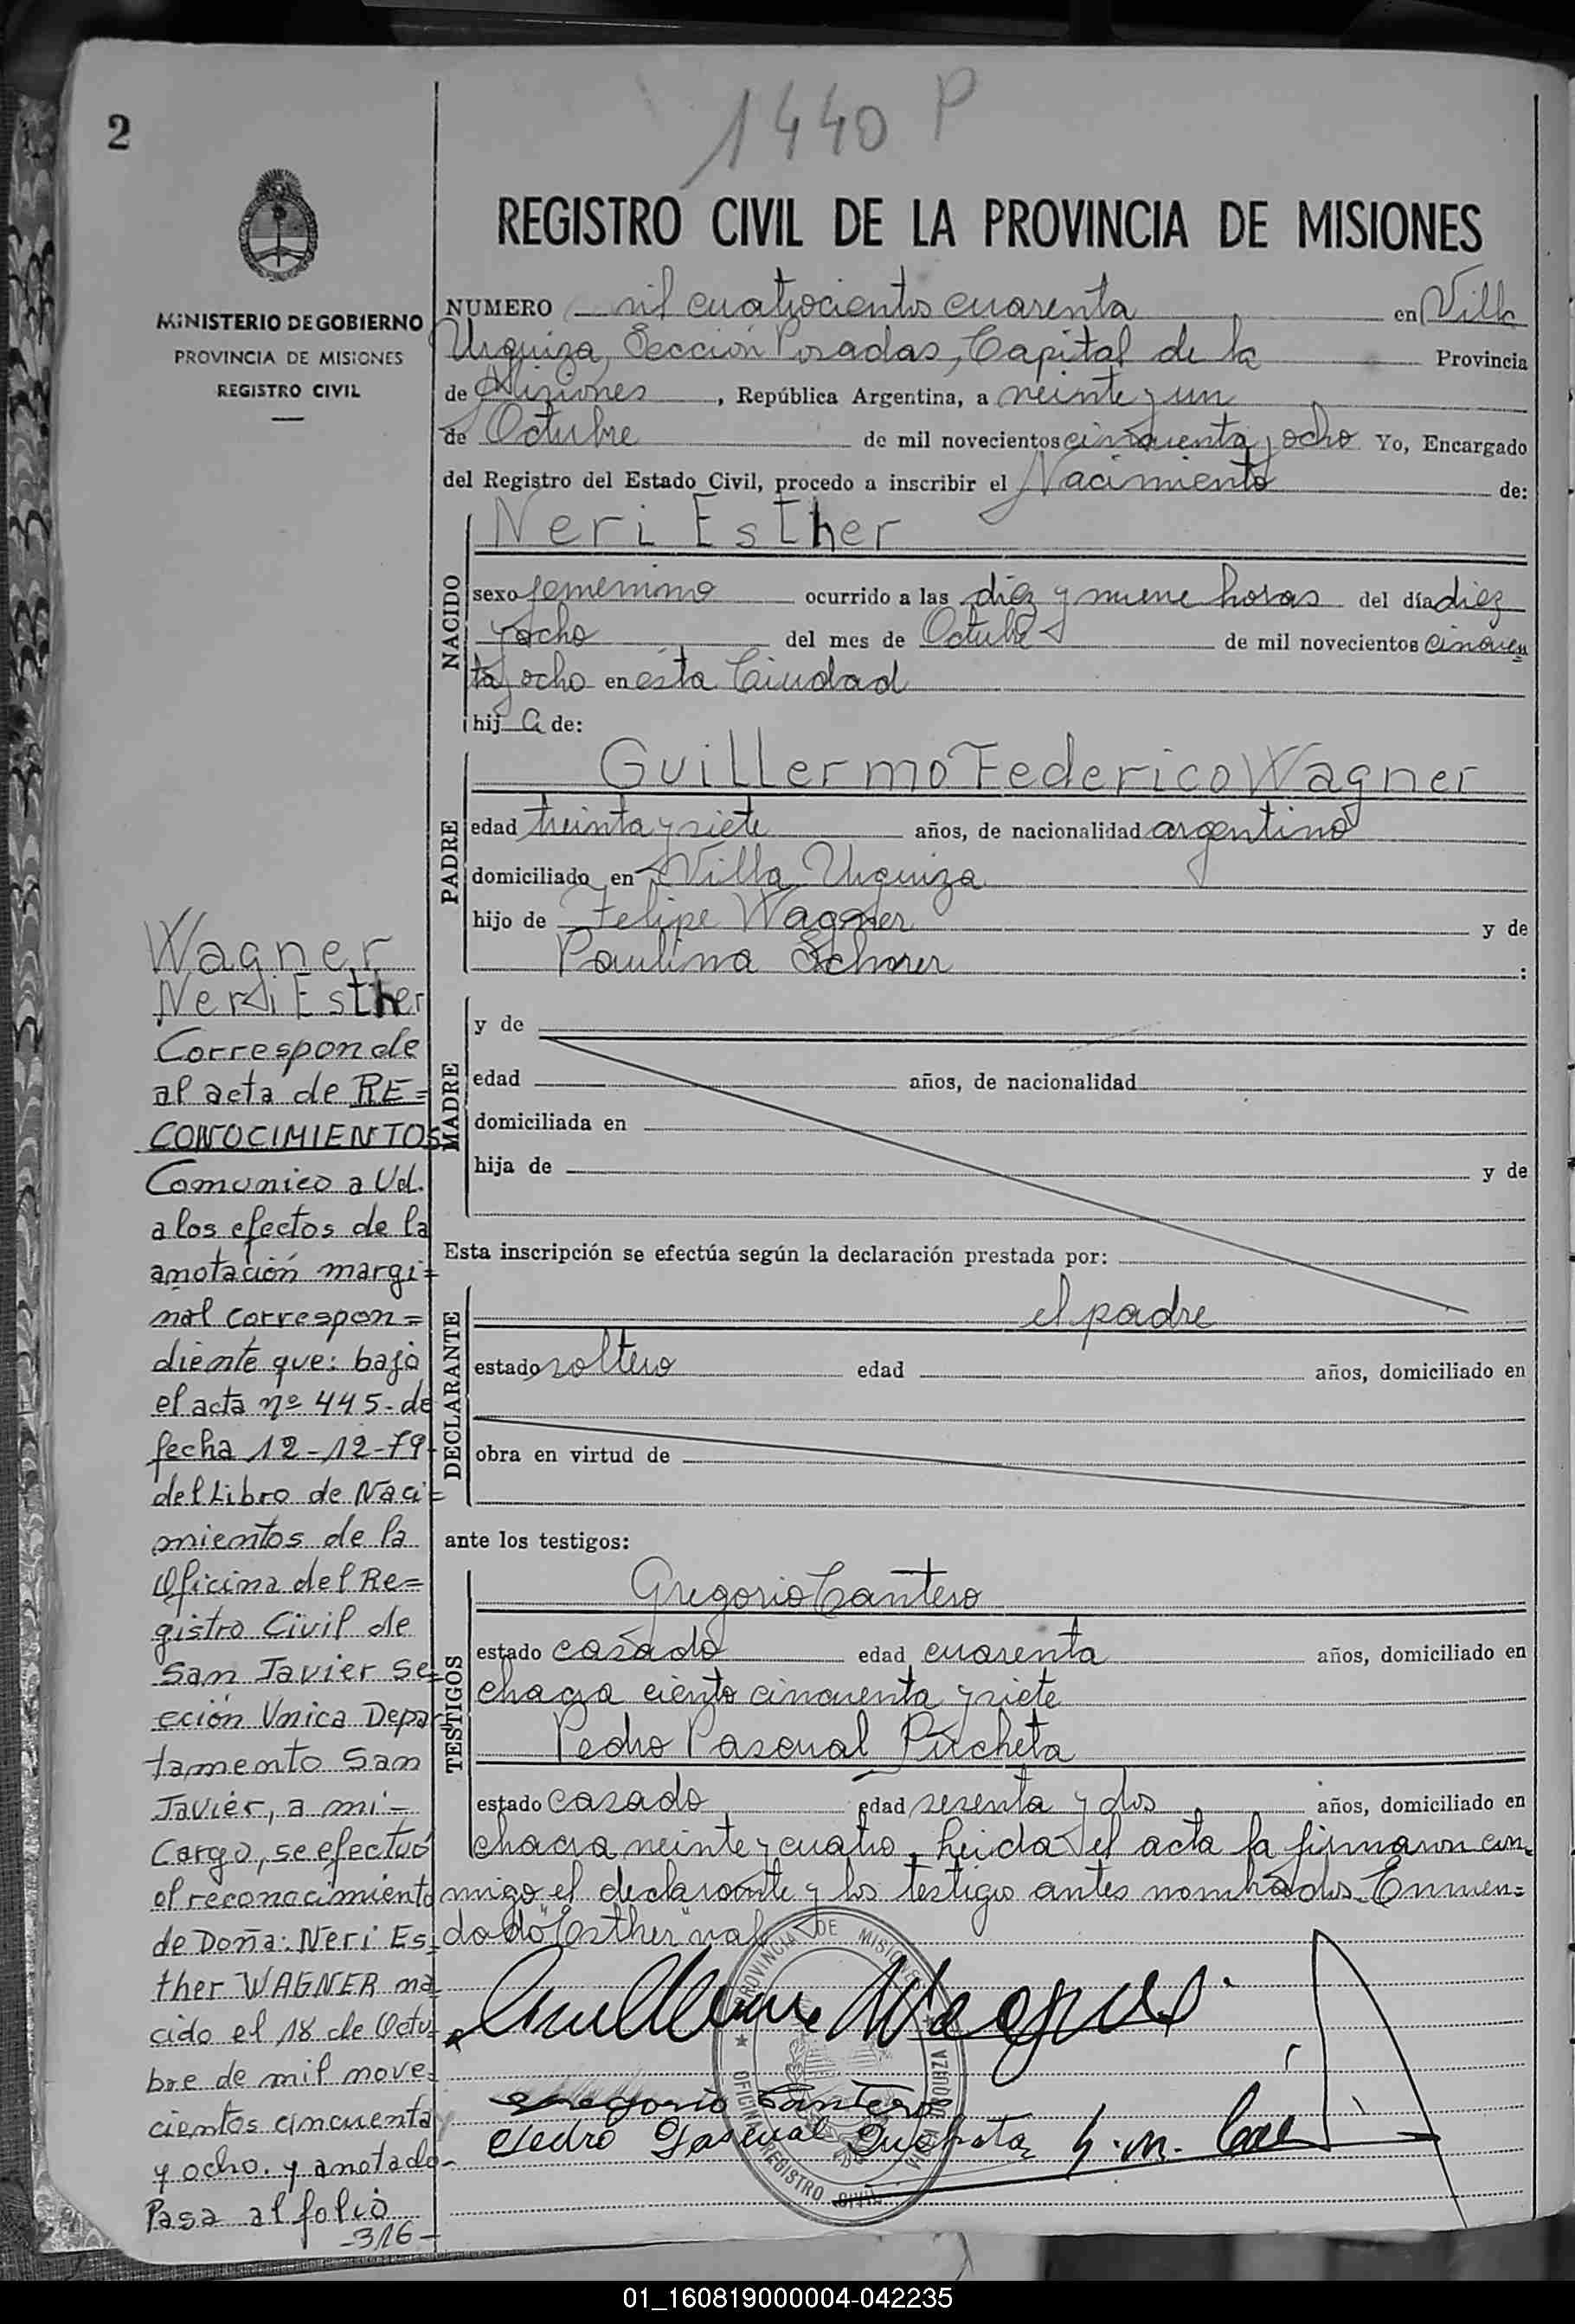 1440 P
2
REGISTRO CIVIL DE LA PROVINCIA DE MISIONES
MINISTERIO DE GOBIERNO
PROVINCIA DE MISIONES
REGISTRO CIVIL
NUMERO mil cuatrocientos cuarenta en Villa
Urquiza, Sección Posadas, Capital de la Provincia
de Misiones, República Argentina, a veinte y un
de Octubre de mil novecientos cincuenta y ocho Yo, Encargado
del Registro del Estado Civil, procedo a inscribir el Nacimiento de:
NACIDO
Neri Esther
sexo femenino ocurrido a las diez y nueve horas del día diez
y ocho del mes de Octubre de mil novecientos cincuen
ta y ocho en ésta Ciudad
hij a de:
PADRE
Guillermo Federico Wagner
edad treinta y siete años, de nacionalidad argentino
domiciliado en Villa Urquiza
hijo de Felipe Wagner y de
Paulina :
MADRE
y de
edad años, de nacionalidad
domiciliada en
hija de y de
Esta inscripción se efectúa según la declaración prestada por:
DECLARANTE
el padre
estado soltero edad años, domiciliado en
obra en virtud de
ante los testigos:
TESTIGOS
Gregorio Cantero
estado casado edad cuarenta años, domiciliado en
chacra ciento cincuenta y siete
Pedro Pascual Pucheta
estado casado edad sesenta y dos años, domiciliado en
chacra veinte y cuatro. Leida el acta la firmaron con
migo el declarante y los testigos antes nombrados. Enmen=
dado "Esther" vale
Wagner
Neri Esther
Corresponde
al acta de RE=
CONOCIMIENTOS
Comunico a Ud.
a los efectos de la
anotación margi=
nal correspon=
diente que: bajo
el acta nº 445-de
fecha 12-12-79
del Libro de Naci=
mientos de la
Oficina del Re=
gistro Civil de
San Javier Se=
cción Unica Depar
tamento San
Javier, a mi=
Cargo, se efectuó
el reconocimiento
de Doña: Neri Es=
ther WAGNER na
cido el 18 de Octu=
bre de mil nove=
cientos cincuenta
y ocho. y anotado-
Pasa al folio
-316-
Guillermo Wagner
Gregorio Cantero
Pedro Pascual Pucheta
PROVINCIA DE MISIONES
OFICINA REGISTRO CIVIL
VILLA URQUIZA
01_160819000004-042235